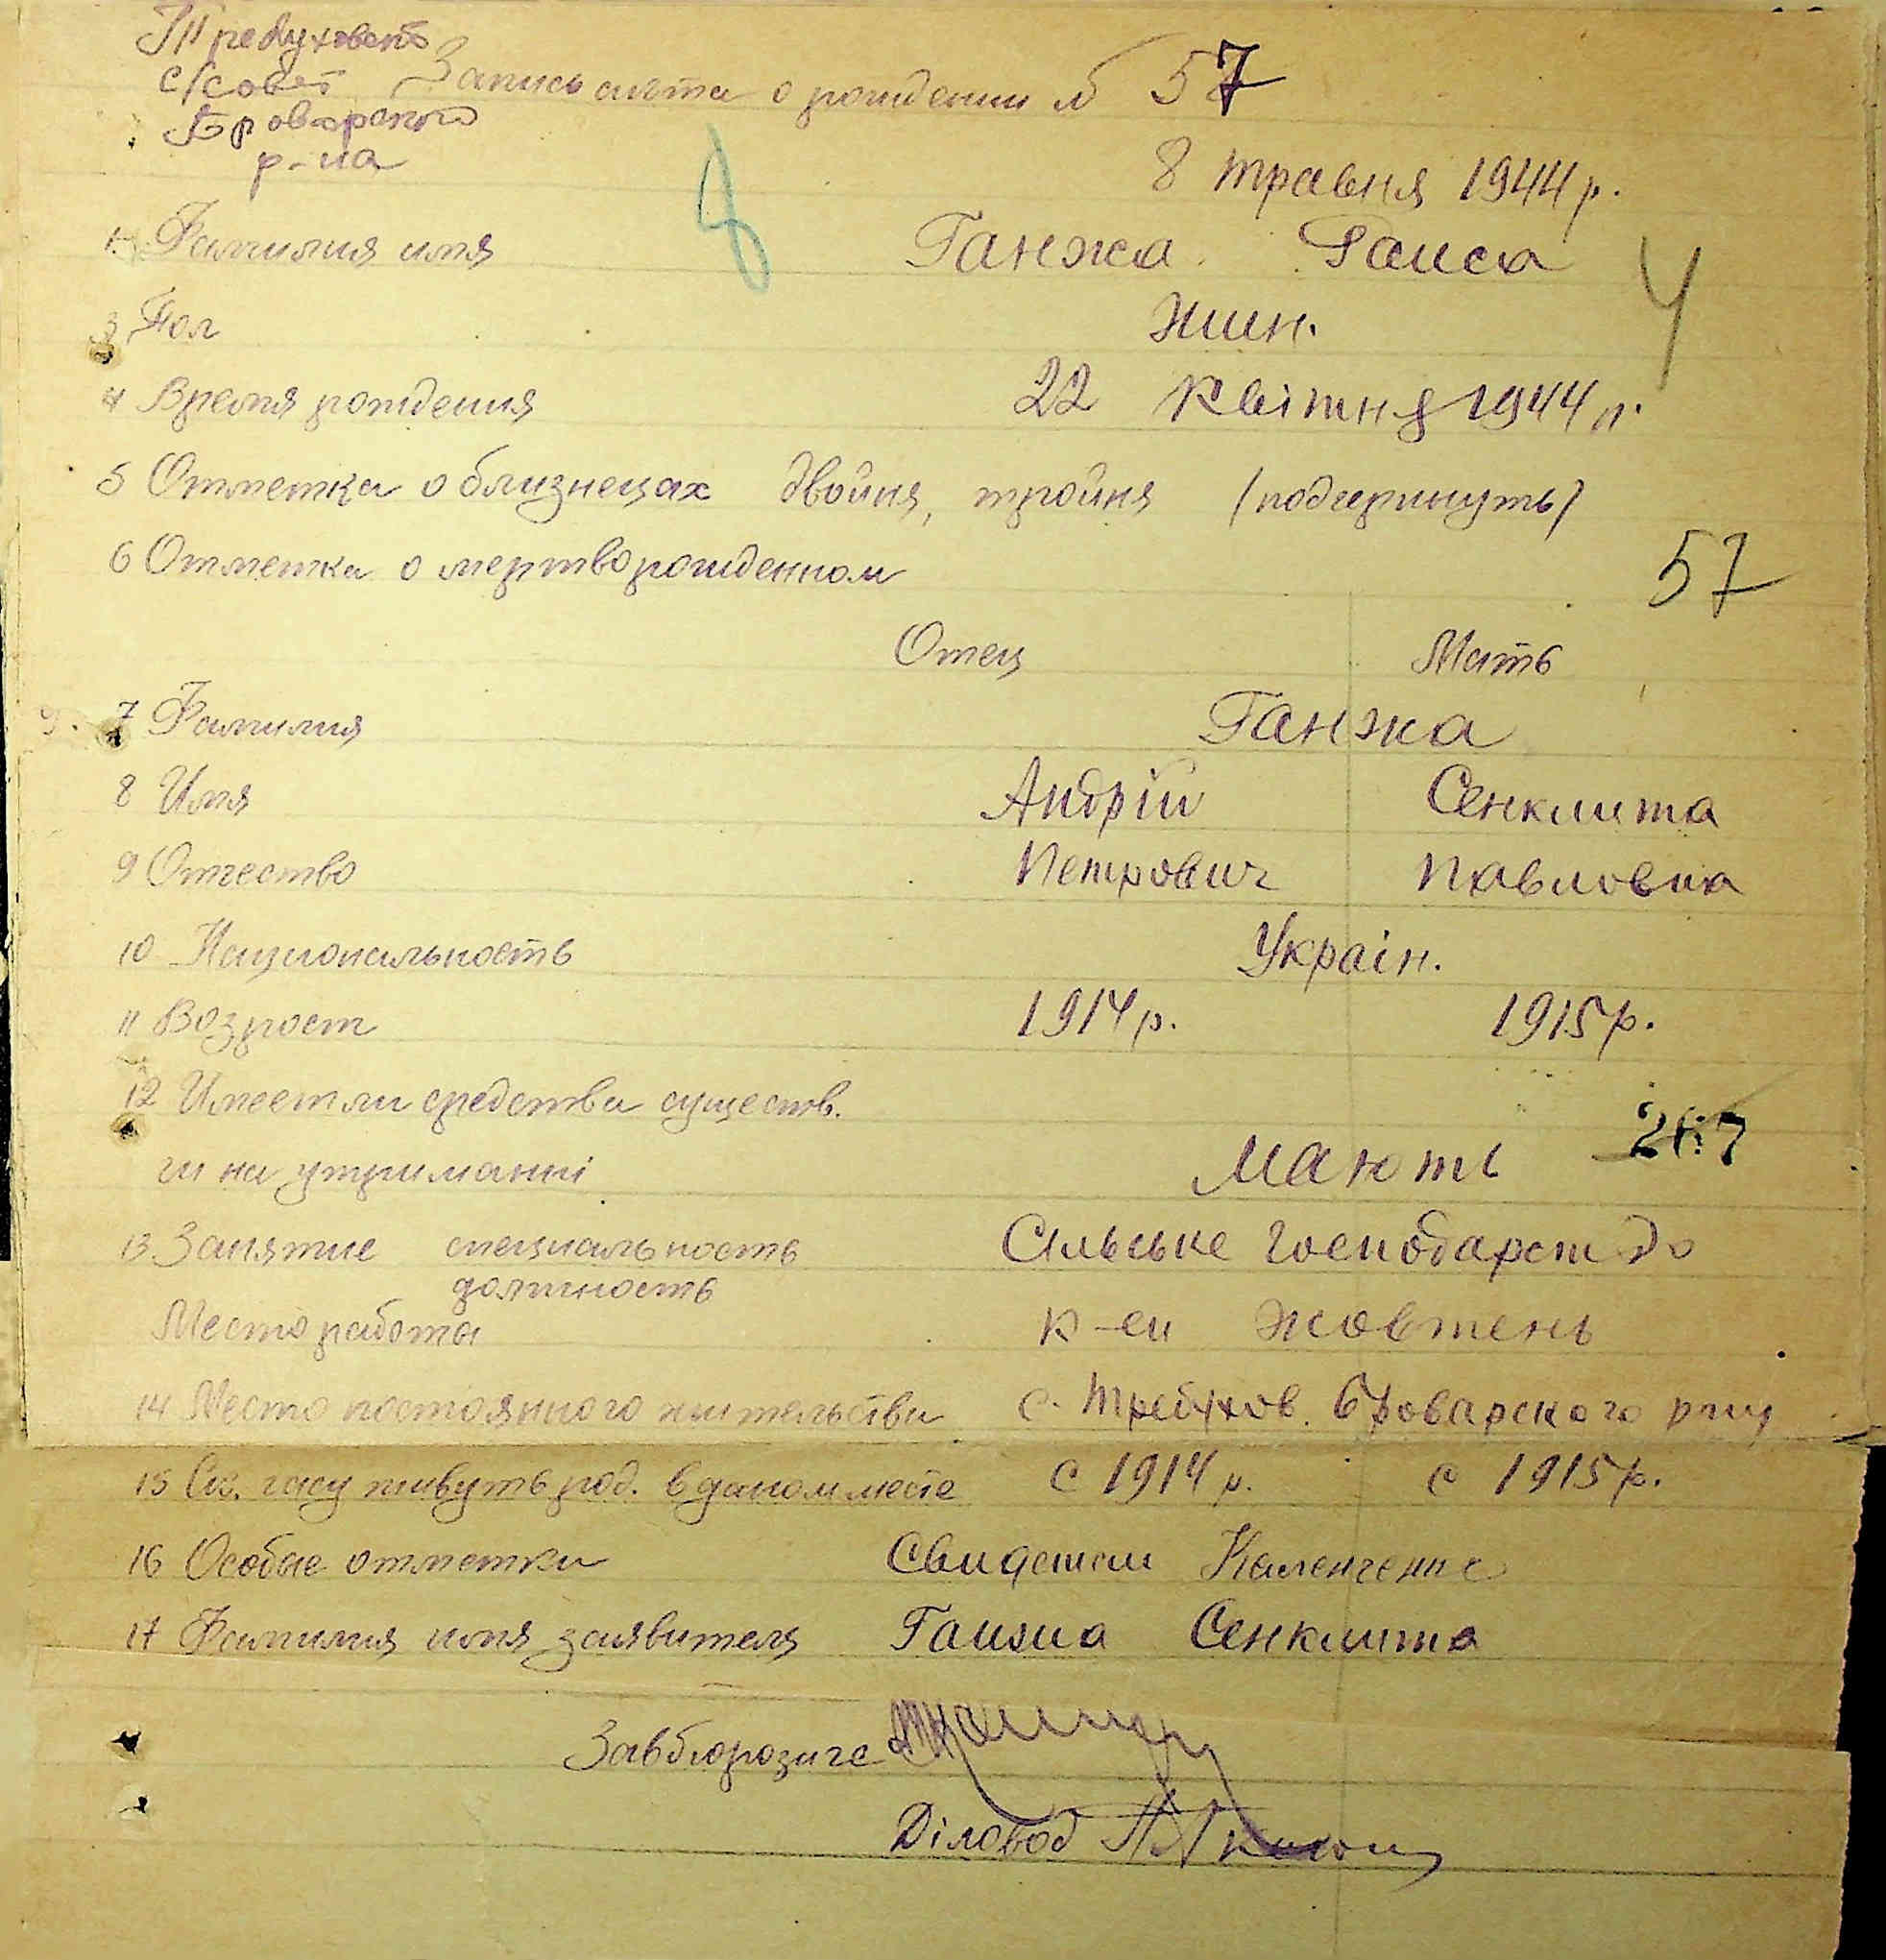 Требуховского
с/совет
Броварского
р-на
Запись акта о рождении № 57
8 травня 1944 р.
1 Фамилия имя Ганжа Раиса
3 Пол жин.
4 Время рождения 22 квітня 1944 р.
5 Отметка о близнецах двойня, тройня (подчеркнуть)
6 Отметка о мертворожденном
57
Отец Мать
7 Фамилия Ганжа
8 Имя Андрій Сенклита
9 Отчество Петрович Павловна
10 Национальность Україн.
11 Возраст 1914 р. 1915 р.
12 Имеет ли средства существ.
чи на утриманні мають
13 Занятие специальность Сильське господарство
должность
Место работы к-сп Жовтень
14 Место постоянного жительства с. Требухов. Броварского р-ну
15 Ск. часу живуть род. в даном месте с 1914 р. с 1915 р.
16 Особые отметки Свидетели
17 Фамилия имя заявителя Ганжа Сенклита
Завбюрозагс
Діловод